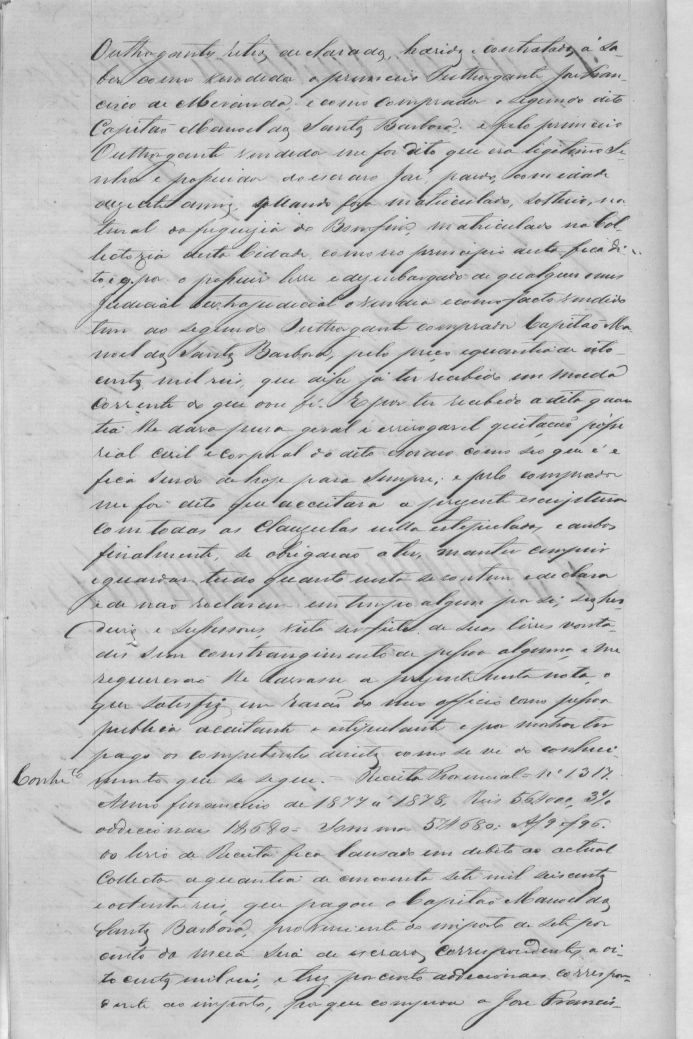 Outhorgantes, estes declarados, havidos e contratados á sa-
ber como vendedor o primeiro Outhorgante José Fran-
cisco de Miranda, e como comprador o segundo dito
Capitão Manoel dos Santos Barbosa. e pelo primeiro
Outhorgante vendedor me foi dito que era legitimo Se-
nhor e possuidor do escravo José, pardo, com edade
annos, quando foi matriculado, solteiro, na
tural da freguezia do Bomfim, matriculado na Col-
lectoria desta Cidade, como no principio desta fica di-
to e q. por o possuir livre e desembargado de qualquer onus
Judicial ou extrajudicial o vendia e como facto vendido
tem ao segundo Outhorgante comprador Capitão Ma-
noel dos Santos Barbosa, pelo preço e quantia de oito
centos mil reis, que disse já ter recebido em moeda
corrente do que dou fé. E por ter recebido a dita quan
tia lhe dava pura geral e irrevogavel quitação
civil e corporal do dito escravo como seo que é e
fica sendo de hoje para sempre; e pelo comprador
me foi dito que acceitava a prezente escriptura
com todas as clauzulas nella estepuladas, e ambos
finalmente, se obrigarão a ter, manter cumprir
e guardar tudo quanto nesta se contem e declara
e de não reclarem em tempo algum por si, seos her
deiros e sucessores, visto ser feita de suas livres vonta-
des sem constrangimento de pessoa alguma, e me
requererão lhe lavrasse a prezente nesta nota, o
que satisfiz em razão do meu officio como pessoa
publica aceitante e estipulante e por mostrar ter
pago os competentes direitos como se vê do conheci-
Conhe.to mento que se segue. Receita Provincial = Nº 1317.
Anno financeiro de 1877 á 1878. Reis 56$000, 3%
addecionais 1$680 = Somma 57$680. A f 9 v
do livro de Receita fica lansado em debito ao actual
Collector a quantia de cincoenta sete mil seiscentos
e oitenta reis, que pagou o Capitão Manoel dos
Santos Barbosa, proveniente do imposto de sete por
cento da meia siza de escravos correspondentes a oi-
to centos mil reis, e trez por cento addecionais corres-
dente ao imposto, por que comprou a José Francis-